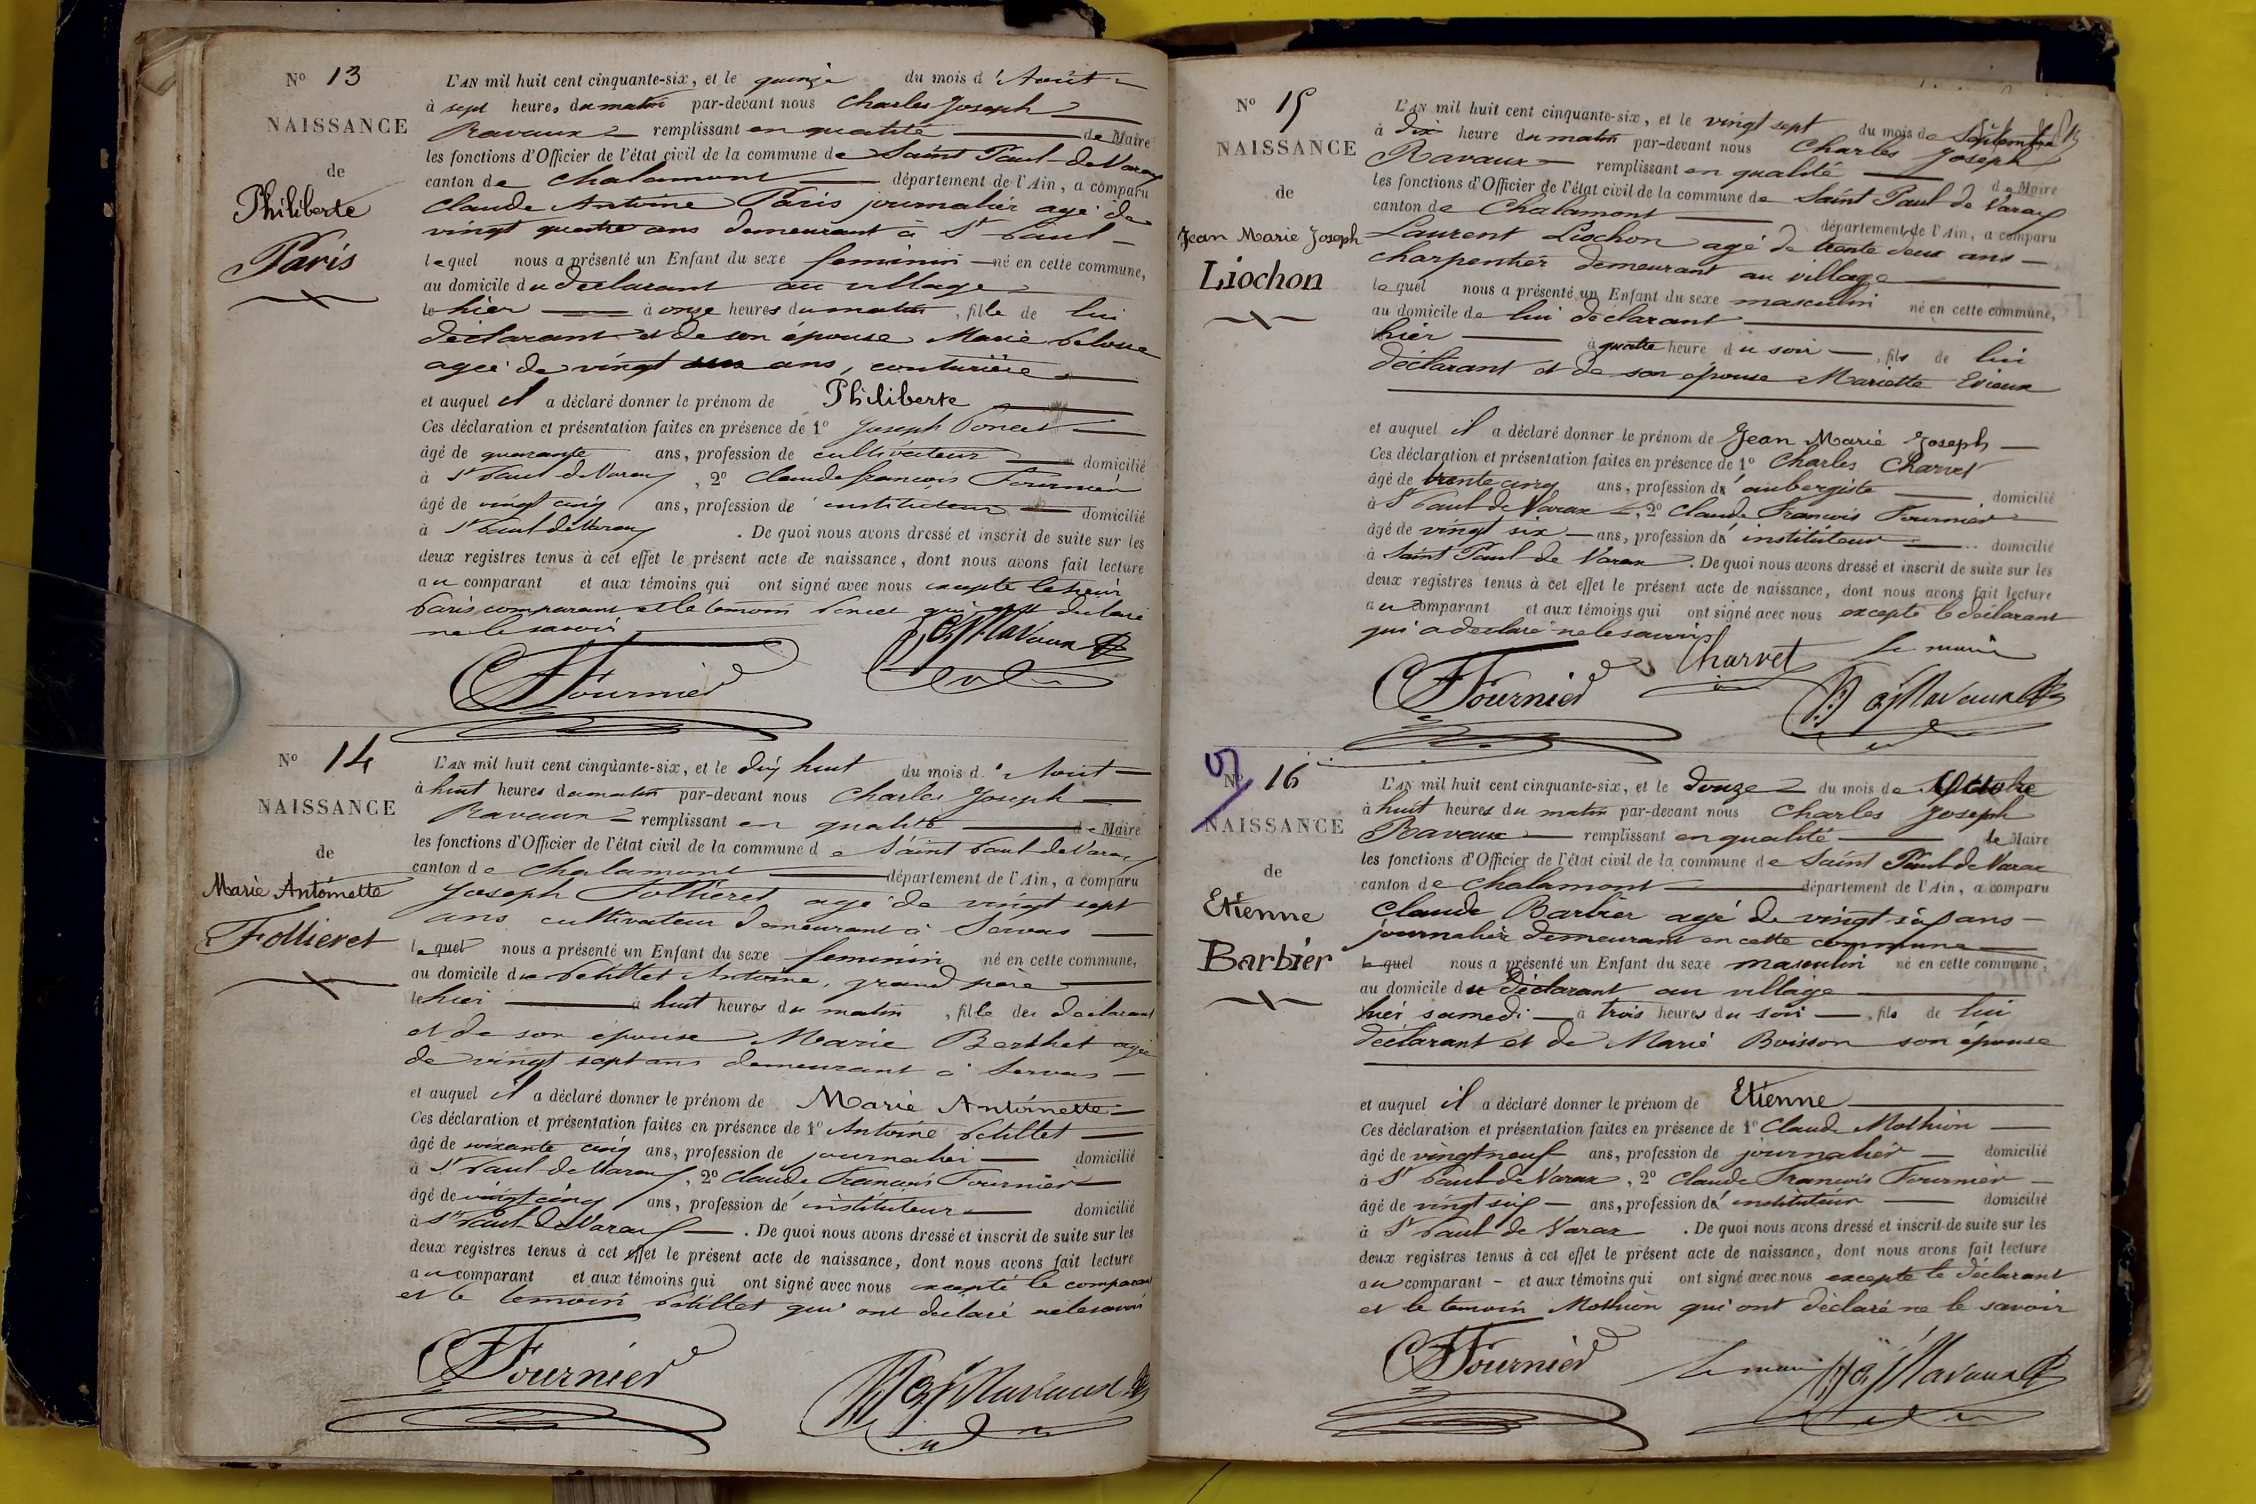 N° 13
NAISSANCE
de
Philiberte
Paris
L'AN mil huit cent cinquante-six, et le quinze du mois d'Août
à sept heures du matin par-devant nous Charles Joseph
Ravaux remplissant en qualité de Maire
les fonctions d'Officier de l'état civil de la commune de Saint Paul de Varax
canton de Chalamont département de l'Ain, a comparu
Claude Antoine Paris journalier agé de
vingt quatre ans demeurant à St Paul
lequel nous a présenté un Enfant du sexe feminin né en cette commune,
au domicile du declarant au village
le hier à onze heures du matin, fille de lui
déclarant et de son épouse Marie
agée de vingt ans, couturière
et auquel il a déclaré donner le prénom de Philiberte
Ces déclaration et présentation faites en présence de 1° Joseph Poncet
âgé de quarante ans, profession de cultivateur domicilié
à St Paul de Varax, 2° Claude francois Fournier
âgé de vingt cinq ans, profession de instituteur domicilié
à St Paul de Varax. De quoi nous avons dressé et inscrit de suite sur les
deux registres tenus à cet effet le présent acte de naissance, dont nous avons fait lecture
au comparant et aux témoins qui ont signé avec nous excepté le sieur
Paris comparant et le temoin Poncet qui ont declaré
ne le savoir
Fournier Ravaux
N° 14
NAISSANCE
de
Marie Antoinette
Follieret
L'AN mil huit cent cinquante-six, et le dix huit du mois d'Aout
à huit heures du matin par-devant nous Charles Joseph
Ravaux remplissant en qualité de Maire
les fonctions d'Officier de l'état civil de la commune de Saint Paul de Varax
canton de Chalamont département de l'Ain, a comparu
Joseph Follieret agé de vingt sept
ans cultivateur demeurant à Servas
lequel nous a présenté un Enfant du sexe feminin né en cette commune,
au domicile de Petillet Antoine, grand père
le hier à huit heures du matin, fille du declarant
et de son épouse Marie Berthet agée
de vingt sept ans demeurant à Servas
et auquel il a déclaré donner le prénom de Marie Antoinette
Ces déclaration et présentation faites en présence de 1° Antoine Petillet
âgé de soixante cinq ans, profession de journalier domicilié
à St Paul de Varax, 2° Claude Francois Fournier
âgé de vingt cinq ans, profession dé instituteur domicilié
à St Paul de Varax. De quoi nous avons dressé et inscrit de suite sur les
deux registres tenus à cet effet le présent acte de naissance, dont nous avons fait lecture
au comparant et aux témoins qui ont signé avec nous excepté le comparant
et le temoin Petillet qui ont declaré ne le savoir
Fournier Ravaux
N° 15
NAISSANCE
de
Jean Marie Joseph
Liochon
L'AN mil huit cent cinquante-six, et le vingt sept du mois de Septembre
à dix heure du matin par-devant nous Charles Joseph
Ravaux remplissant en qualité de Maire
les fonctions d'Officier de l'état civil de la commune de Saint Paul de Varax
canton de Chalamont département de l'Ain, a comparu
Laurent Liochon agé de trente deux ans
charpentier demeurant au village
lequel nous a présenté un Enfant du sexe masculin né en cette commune,
au domicile de lui déclarant
hier à quatre heure du soir, fils de lui
déclarant et de son épouse Mariette Evieux
et auquel il a déclaré donner le prénom de Jean Marie Joseph
Ces déclaration et présentation faites en présence de 1° Charles Charvet
âgé de trente cinq ans, profession d'aubergiste domicilié
à St Paul de Varax, 2° Claude Francois Fournier
âgé de vingt six ans, profession dé instituteur domicilié
à Saint Paul de Varax. De quoi nous avons dressé et inscrit de suite sur les
deux registres tenus à cet effet le présent acte de naissance, dont nous avons fait lecture
au comparant et aux témoins qui ont signé avec nous excepté le déclarant
qui a declaré ne le savoir
Charvet le maire
Fournier Ravaux
N° 16
NAISSANCE
de
Etienne
Barbier
L'AN mil huit cent cinquante-six, et le douze du mois de Octobre
à huit heures du matin par-devant nous Charles Joseph
Ravaux remplissant en qualité de Maire
les fonctions d'Officier de l'état civil de la commune de Saint Paul de Varax
canton de Chalamont département de l'Ain, a comparu
Claude Barbier agé de vingt six ans
journalier demeurant en cette commune
lequel nous a présenté un Enfant du sexe masculin né en cette commune,
au domicile du déclarant au village
hier samedi à trois heures du soir, fils de lui
déclarant et de Marie Boisson son épouse
et auquel il a déclaré donner le prénom de Etienne
Ces déclaration et présentation faites en présence de 1° Claude Mathion
âgé de vingt neuf ans, profession de journalier domicilié
à St Paul de Varax, 2° Claude Francois Fournier
âgé de vingt six ans, profession dé instituteur domicilié
à St Paul de Varax. De quoi nous avons dressé et inscrit de suite sur les
deux registres tenus à cet effet le présent acte de naissance, dont nous avons fait lecture
au comparant et aux témoins qui ont signé avec nous excepté le déclarant
et le temoin Mathion qui ont déclaré ne le savoir
Fournier le maire Ravaux